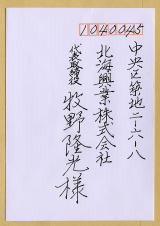 1040045
中央区築地二-六-八
北海興業株式会社
代表取締役
牧野隆光様